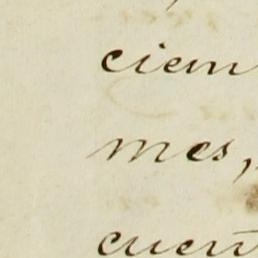 ciem
mes,
cuen